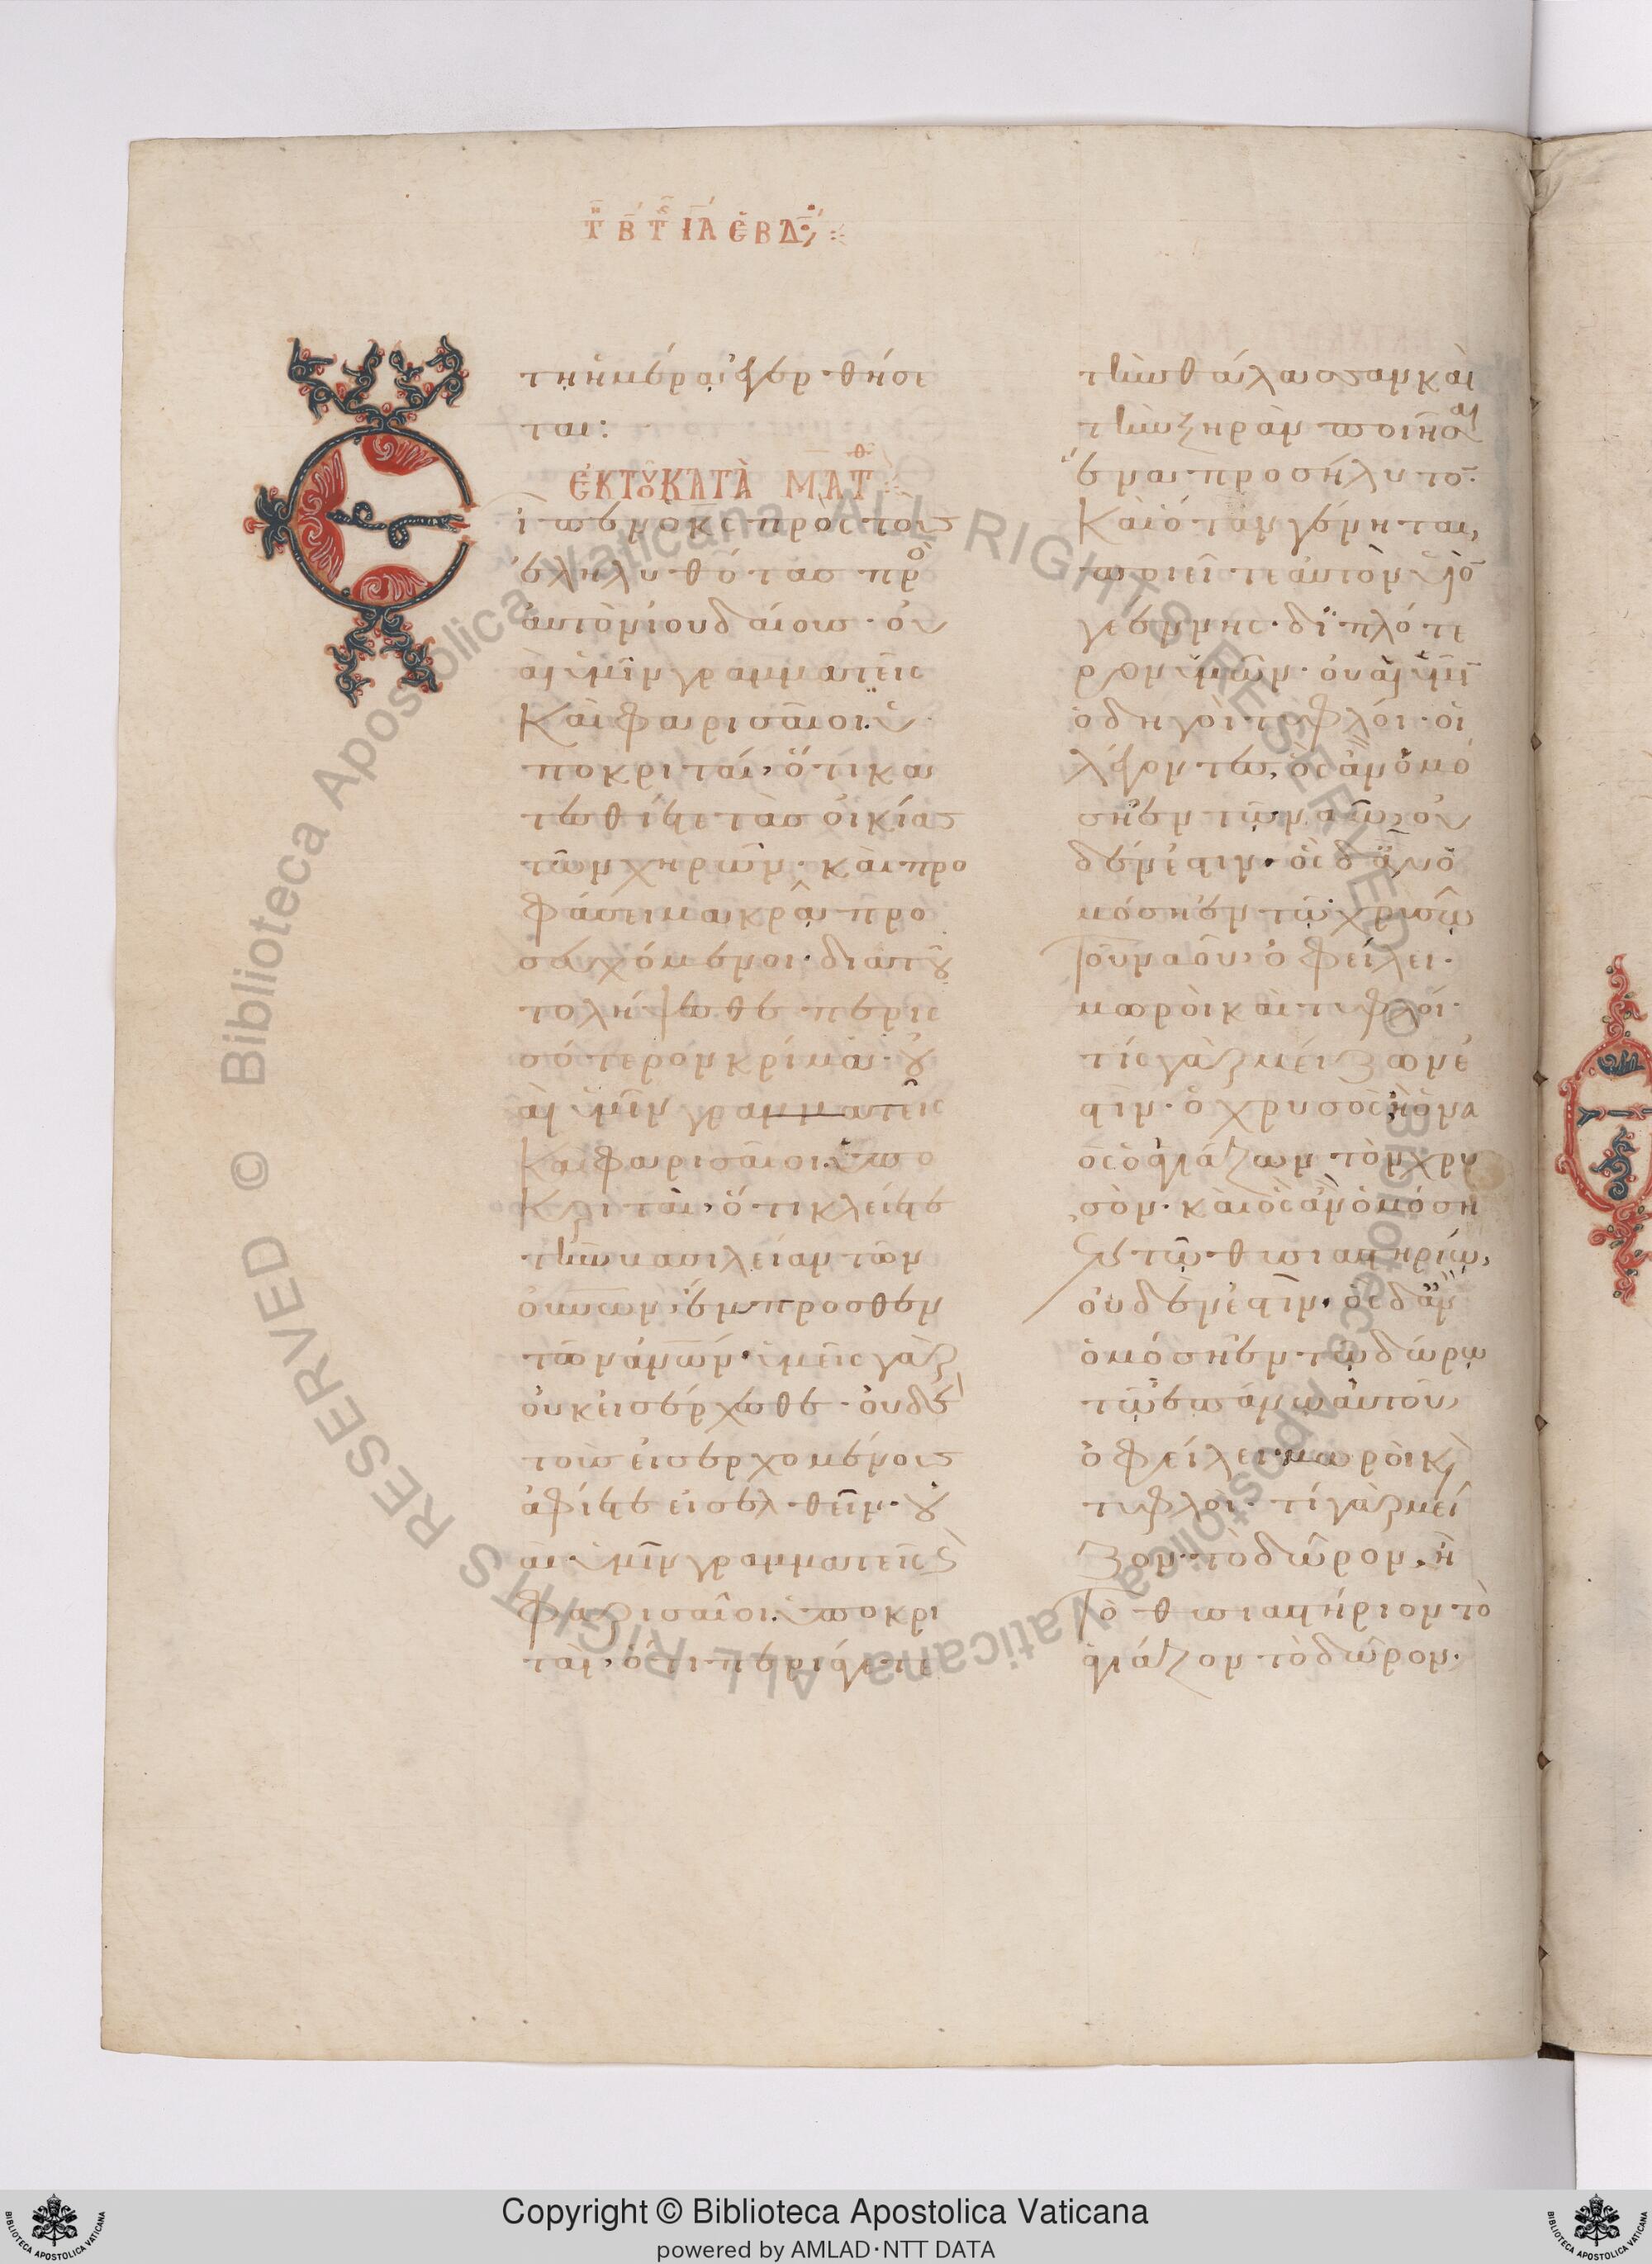 Τῌ Β Τῆς ΙΑ ἘΒΔΟ
τῃ ἡμέρᾳ ἐγερθήσε
ται:
ἘΚ ΤΟΥ ΚΑΤᾺ ΜΑΤΘ
Εἶπεν ὁ κς πρὸς τοὺς
ἐληλυθότας πρὸ
αὐτὸν ἰουδαίους· οὐ
αὶ ὑμῖν γραμματεῖς
καὶ φαρισαῖοι ὑ
ποκριταί, ὅτι κα
τεσθίετε τὰς οἰκίας
τῶν χηρῶν· καὶ προ
φάσει μακρᾷ προ
σευχόμενοι· διατοῦ
το λήψεσθε περις
σότερον κρίμα· οὐ
αὶ ὑμῖν γραμματεῖς
καὶ φαρισαῖοι ὑπο
κριταὶ, ὅτι κλείετε
τὴν βασιλείαν τῶν
οὐνῶν ἔμπροσθεν
τῶν ἀνων· ὑμεῖς γὰρ
οὐκ εἰσέρχεσθε· οὐδὲ
τοὺς εἰσερχομένους
ἀφίετε εἰσελθεῖν· οὐ
αὶ ὑμῖν γραμματεῖς ϗ
φαρισαῖοι ὑποκρι
ταὶ, ὅτι περιάγετε
τὴν θάλασσαν καὶ
τὴν ξηρὰν ποιῆσαι
ἕνα προσήλυτο̄·
καὶ ὅταν γένηται,
ποιεῖτε αὐτὸν υἱὸ̄
γεέννης· διπλότε
ρον ὑμῶν· οὐαὶ ὑμῖ̄
ὁδηγοὶ τυφλοί· οἱ
λέγοντες, ὃς ἂν ὀμό
σῃ ἐν τῷ ναῷ, οὐ
δέν ἐστιν· ὃς δ' ἂν ὀ
μόσῃ ἐν τῷ χρυσῷ
τοῦ ναοῦ, ὀφείλει·
μωροὶ καὶ τυφλοί·
τίς γὰρ μείζων ἐ
στιν· ὁ χρυσὸς ἢ ὁ να
ὸς ὁ ἁγιάζων τὸν χρυ
σόν· καὶ ὃς ἂν ὀμόσῃ
ἐν τῷ θυσιαστηρίῳ,
οὐδέν ἐστιν· ὃς δ' ἂν
ὀμόσῃ ἐν τῷ δώρῳ
τῷ ἐπάνω αὐτοῦ,
ὀφείλει· μωροὶ κ̀
τυφλοὶ· τί γὰρ μεῖ
ζον· τὸ δῶρον, ἢ
τὸ θυσιαστήριον τὸ
ἁγιάζον τὸ δῶρον·
© Biblioteca Apostolica Vaticana ALL RIGHTS RESERVED
© Biblioteca Apostolica Vaticana ALL RIGHTS RESERVED
Copyright © Biblioteca Apostolica Vaticana
powered by AMLAD·NTT DATA
BIBLIOTECA APOSTOLICA VATICANA
BIBLIOTECA APOSTOLICA VATICANA